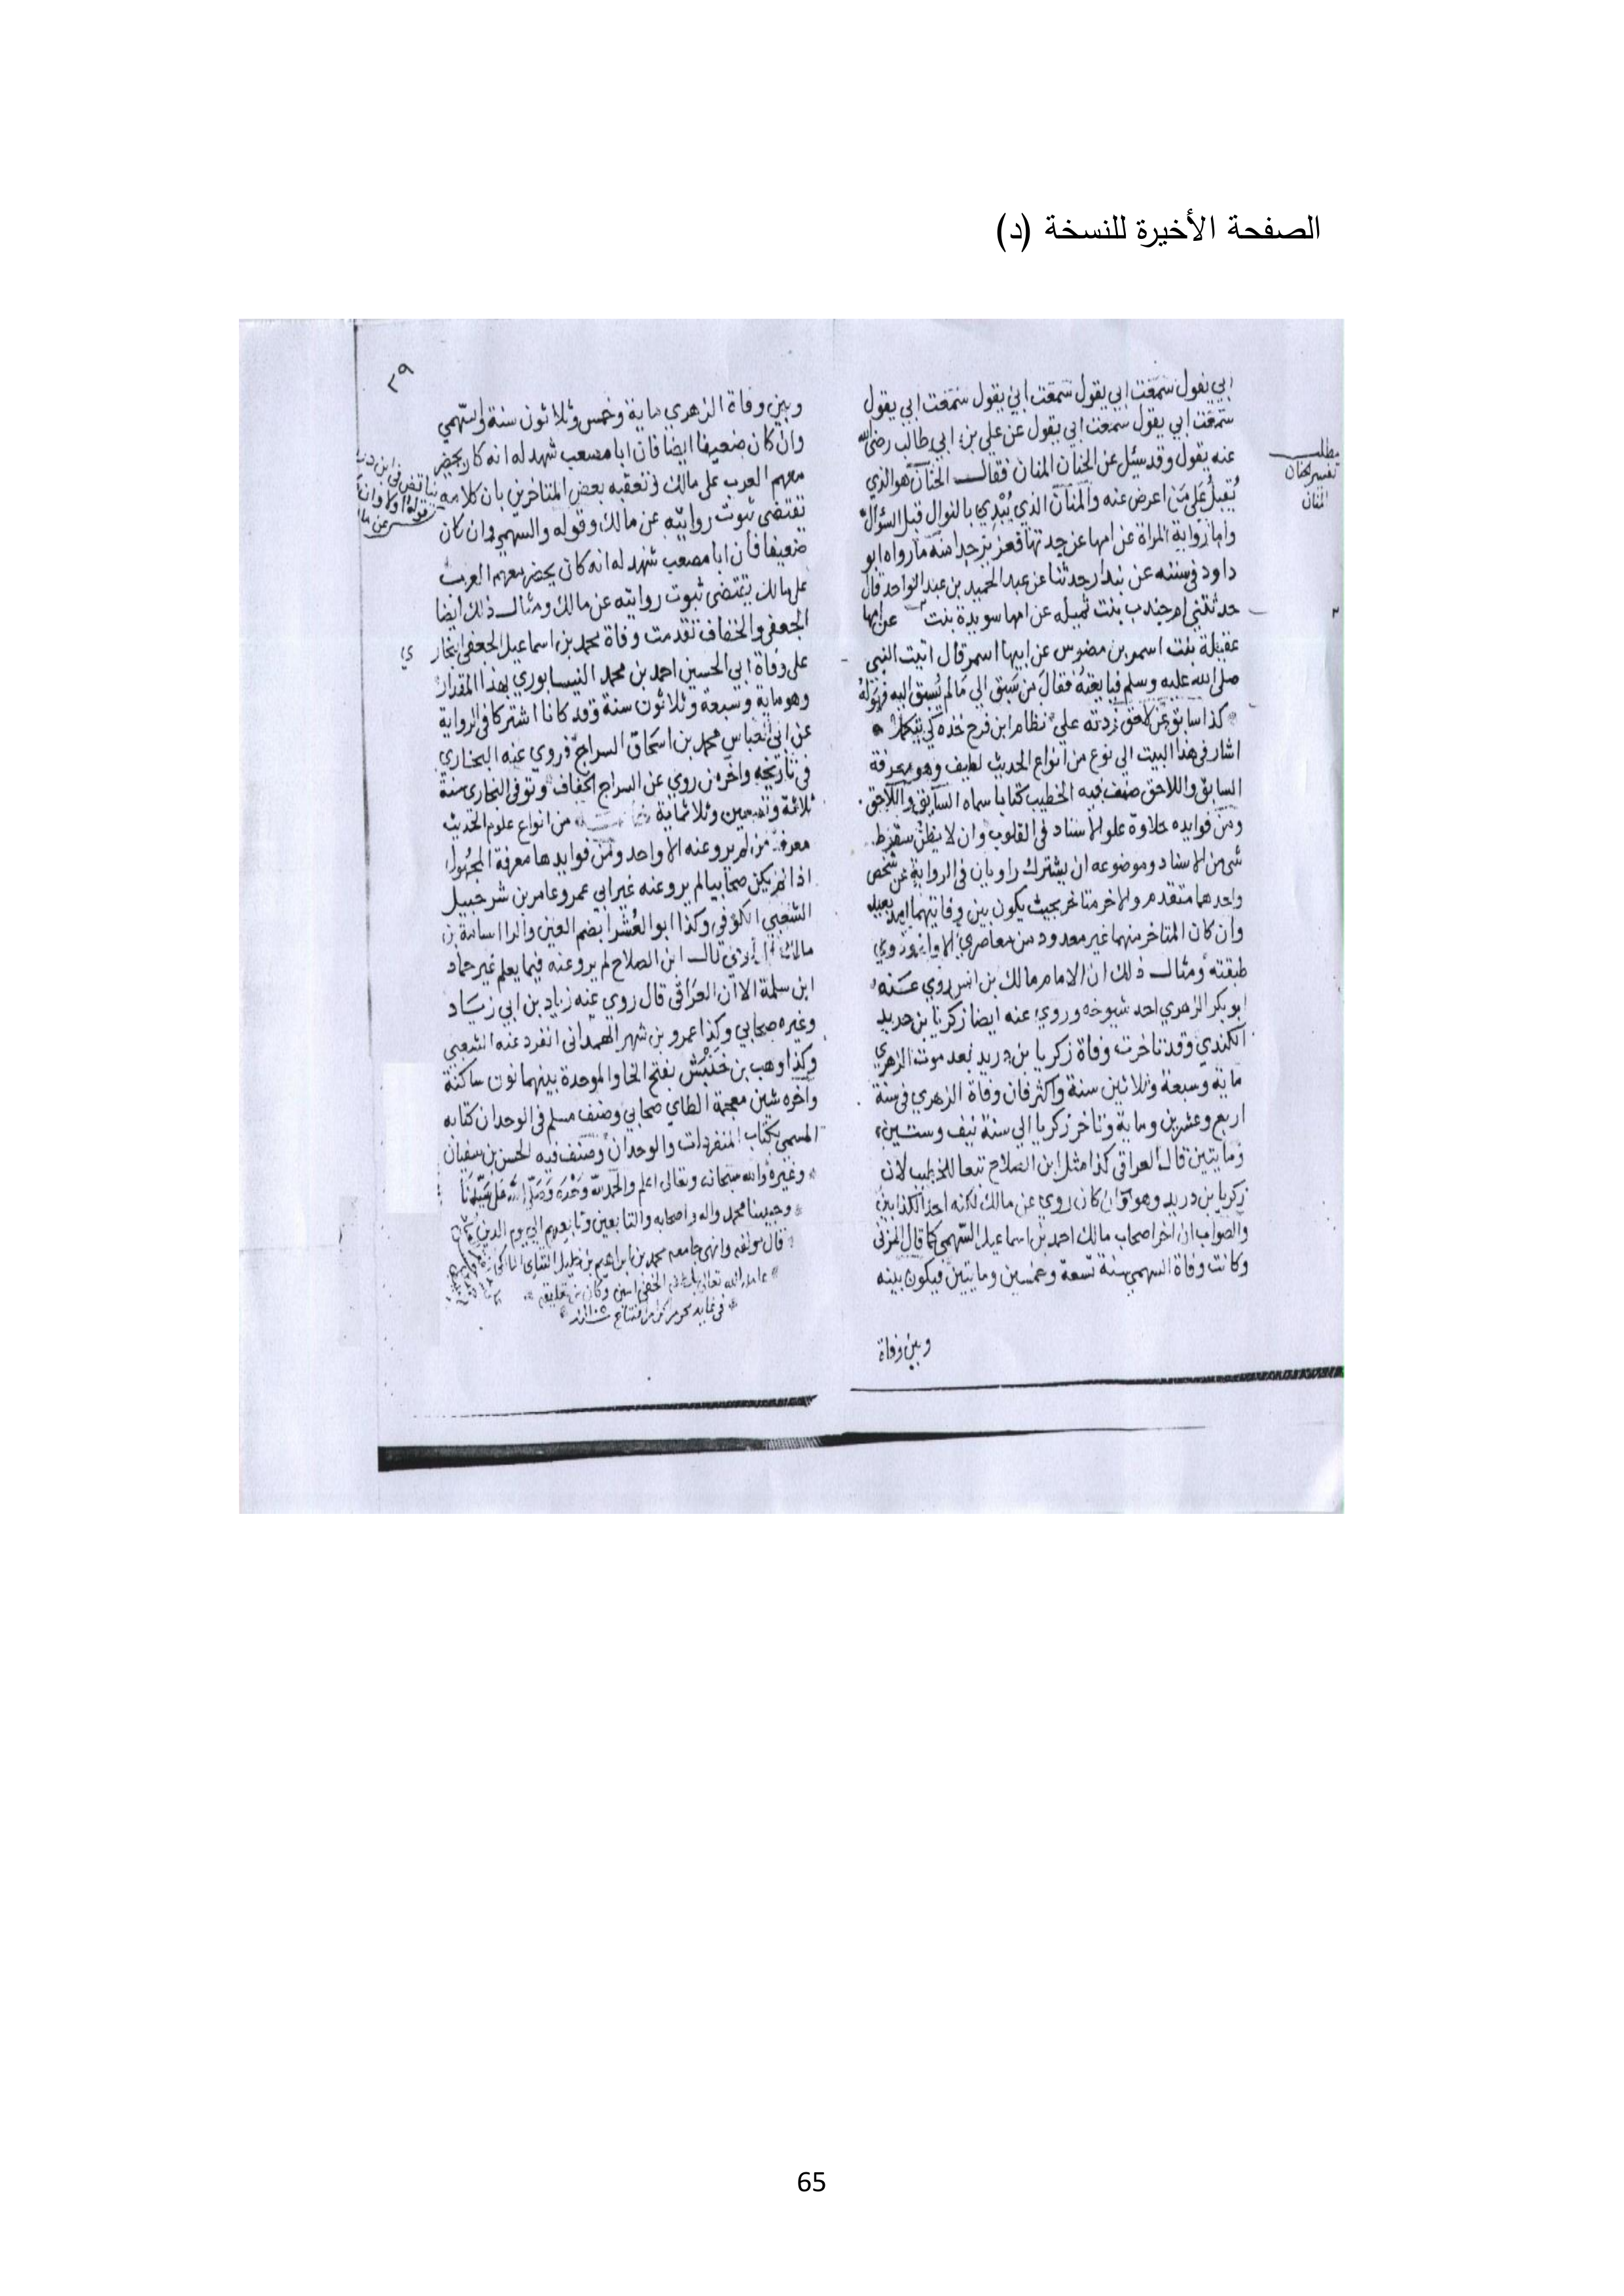 الصفحة الأخيرة للنسخة (د)
ابي يقول سمعت ابي يقول سمعت ابي يقول سمعت ابي يقول
سمعت ابي يقول سمعت ابي يقول عن علي بن ابي طالب رضي الله
عنه يقول وقد سئل عن الحنان المنان فقال الحنان هو الذي
يقبل على من اعرض عنه والمنان الذي يبدي بالنوال قبل السؤال
واما رواية المراة عن امها عن جدتها فعزيز جدا منه ما رواه ابو
داود في سننه عن بندار حدثنا عن عبد الحميد بن عبد الواحد قال
حدثتني ام جندب بنت ثميله عن امها سويدة بنت عن امها
عقيلة بنت اسمر بن مضرس عن ابيها اسمر قال اتيت النبي
صلى الله عليه وسلم فبايعته فقال من سبق الى ما لم يسبق اليه فهو له
كذا سابق عن لاحق زدته على نظام ابن فرح خذه كي
اشار في هذا البيت الى نوع من انواع الحديث لطيف وهو معرفة
السابق واللاحق صنف فيه الخطيب كتابا سماه السابق واللاحق
ومن فوايده حلاوة علو الاسناد في القلوب وان لا يظن سقوط
شي من الاسناد وموضوعه ان يشترك راويان في الرواية عن شخص
واحدهما متقدم والاخر متاخر بحيث يكون بين وفاتيهما امد بعيد
وان كان المتاخر منهما غير معدود من معاصري الاول وذوي
طبقته ومثال ذلك ان الامام مالك بن انس روي عنه
ابو بكر الزهري احد شيوخه وروي عنه ايضا زكريا بن دريد
الكندي وقد تاخرت وفاة زكريا بن دريد بعد موت الزهري
ماية وسبعة وثلاثين سنة واكثر فان وفاة الزهري في سنة
اربع وعشرين وماية وتاخر زكريا الى سنة نيف وستين
ومايتين قال العراقي كذا مثل ابن الصلاح تبعا للخطيب لان
زكريا بن دريد وهو وان كان روي عن مالك لكنه احد الكذابين
والصواب ان اخر اصحاب مالك احمد بن اسماعيل السهمي كما قال المزني
وكانت وفاة السهمي سنة تسعة وخمسين ومايتين فيكون بينه
وبين وفاة
مطلب
تفسير الحنان
المنان
٣٩
وبين وفاة الزهري ماية وخمس وثلاثون سنة والسهمي
وان كان ضعيفا ايضا فان ابا مصعب شهد له انه كان يحضر
معهم العرب على مالك وتعقبه بعض المتاخرين بان كلامه
تقتضي ثبوت روايته عن مالك وقوله والسهمي وان كان
ضعيفا فان ابا مصعب شهد له انه كان يحضر معهم العرب
على مالك يقتضي ثبوت روايته عن مالك ومثال ذلك ايضا
الجعفي والخفاف تقدمت وفاة محمد بن اسماعيل الجعفي البخاري
على وفاة ابي الحسين احمد بن محمد النيسابوري بهذا المقدار
وهو ماية وسبعة وثلاثون سنة وقد كانا اشتركا في الرواية
عن ابي العباس محمد بن اسحاق السراج فروي عنه البخاري
في تاريخه واخر من روي عن السراج الخفاف وتوفي البخاري سنة
ثلاثة وتسعين وثلاثماية من انواع علوم الحديث
معرفة من لم يرو عنه الا واحد ومن فوايدها معرفة المجهول
اذا لم يكن صحابيا لم يرو عنه غير ابي عمرو عامر بن شرحبيل
الشعبي الكوفي وكذا ابو العشرا بضم العين والرا اسامة بن
مالك قال ابن الصلاح لم يرو عنه فيما يعلم غير حماد
ابن سلمة الا ان العراقي قال روي عنه زياد بن ابي زياد
وغيره صحابي وكذا عمرو بن شهر الهمداني انفرد عنه الشعبي
وكذا وهب بن خنبش بفتح الخا والموحدة بينهما نون ساكنة
واخره شين معجمة الطاي صحابي وصنف مسلم في الوحدان كتابه
المسمى بكتاب المنفردات والوحدان وصنف فيه الحسن بن سفيان
وغيره والله سبحانه وتعالى اعلم والحمد لله وحده وصلى الله على سيدنا
وحبيبنا محمد واله واصحابه والتابعين وتابعيهم الى يوم الدين
قال مولفه وانهى جامعه محمد بن ابراهيم بن خليل التتاي المالكي
عامله الله تعالى بلطفه الخفي امين وكان من تعليقه
65